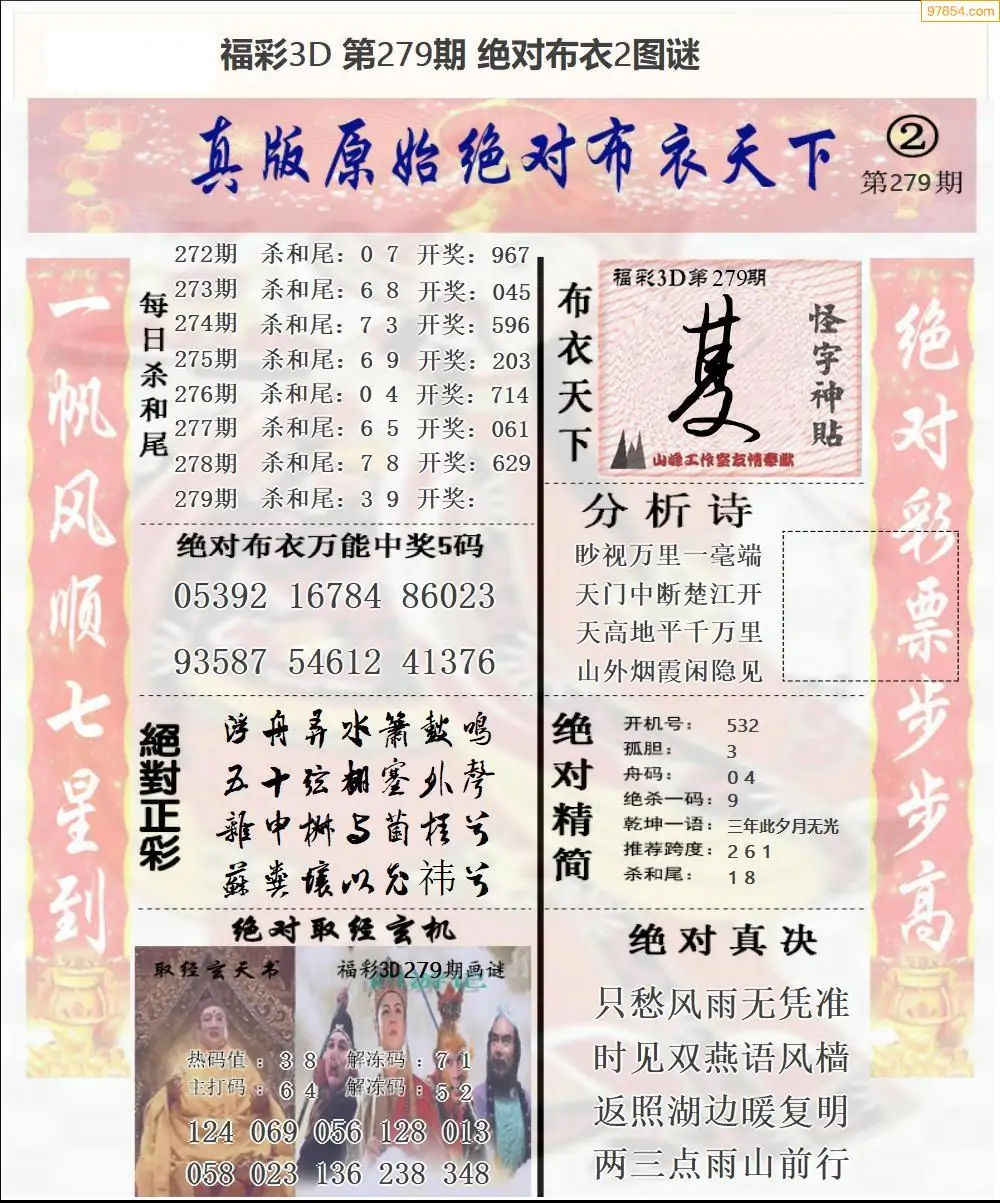 97654.com
福彩3D 第279期 绝对布衣2图谜
真版原始绝对布衣天下
②
第279期
一帆风顺七星到
每日杀和尾
272期 杀和尾：0 7 开奖：967
273期 杀和尾：6 8 开奖：045
274期 杀和尾：7 3 开奖：596
275期 杀和尾：6 9 开奖：203
276期 杀和尾：0 4 开奖：714
277期 杀和尾：6 5 开奖：061
278期 杀和尾：7 8 开奖：629
279期 杀和尾：3 9 开奖：
绝对布衣万能中奖5码
05392 16784 86023
93587 54612 41376
絕對正彩
浮舟弄水箫鼓鸣
五十弦翻塞外声
雜申椒与菌桂兮
蘇粪壤以充祎兮
绝对取经玄机
取经玄天书
福彩3D279期画谜
热码值：3 8 解冻码：7 1
主打码：6 4 解冻码：5 2
124 069 056 128 013
058 023 136 238 348
布衣天下
福彩3D第279期
怪字神貼
山峰工作室友情奉献
分析诗
眇视万里一毫端
天门中断楚江开
天高地平千万里
山外烟霞闲隐见
绝对精简
开机号： 532
孤胆： 3
舟码： 0 4
绝杀一码：9
乾坤一语：三年此夕月无光
推荐跨度：2 6 1
杀和尾： 1 8
绝对真决
只愁风雨无凭准
时见双燕语风樯
返照湖边暖复明
两三点雨山前行
绝对彩票步步高